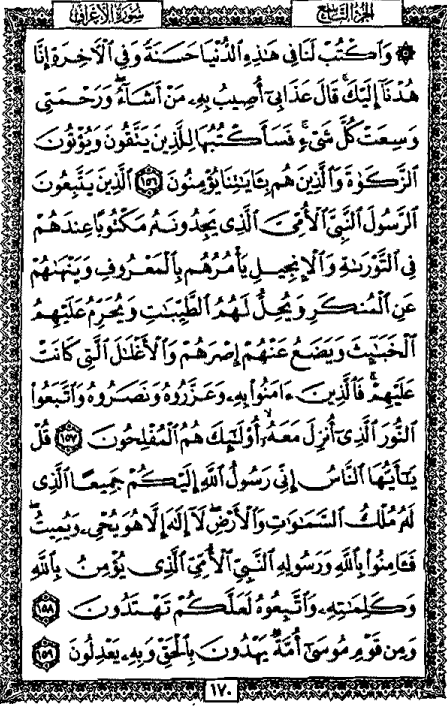 سُورَةُ الأَعْرَافِ
الجُزْءُ التَّاسِعُ
۞ وَٱكْتُبْ لَنَا فِي هَٰذِهِ ٱلدُّنْيَا حَسَنَةً وَفِي ٱلْأَخِرَةِ إِنَّا
هُدْنَآ إِلَيْكَ ۚ قَالَ عَذَابِيٓ أُصِيبُ بِهِۦ مَنْ أَشَآءُ ۖ وَرَحْمَتِي
وَسِعَتْ كُلَّ شَيْءٍ ۚ فَسَأَكْتُبُهَا لِلَّذِينَ يَتَّقُونَ وَيُؤْتُونَ
ٱلزَّكَوٰةَ وَٱلَّذِينَ هُم بِـَٔايَٰتِنَا يُؤْمِنُونَ ١٥٦ ٱلَّذِينَ يَتَّبِعُونَ
ٱلرَّسُولَ ٱلنَّبِيَّ ٱلْأُمِّيَّ ٱلَّذِي يَجِدُونَهُۥ مَكْتُوبًا عِندَهُمْ
فِي ٱلتَّوْرَىٰةِ وَٱلْإِنجِيلِ يَأْمُرُهُم بِٱلْمَعْرُوفِ وَيَنْهَىٰهُمْ
عَنِ ٱلْمُنكَرِ وَيُحِلُّ لَهُمُ ٱلطَّيِّبَٰتِ وَيُحَرِّمُ عَلَيْهِمُ
ٱلْخَبَٰٓئِثَ وَيَضَعُ عَنْهُمْ إِصْرَهُمْ وَٱلْأَغْلَٰلَ ٱلَّتِي كَانَتْ
عَلَيْهِمْ ۚ فَٱلَّذِينَ ءَامَنُوا۟ بِهِۦ وَعَزَّرُوهُ وَنَصَرُوهُ وَٱتَّبَعُوا۟
ٱلنُّورَ ٱلَّذِيٓ أُنزِلَ مَعَهُۥٓ ۙ أُو۟لَٰٓئِكَ هُمُ ٱلْمُفْلِحُونَ ١٥٧ قُلْ
يَٰٓأَيُّهَا ٱلنَّاسُ إِنِّي رَسُولُ ٱللَّهِ إِلَيْكُمْ جَمِيعًا ٱلَّذِي
لَهُۥ مُلْكُ ٱلسَّمَٰوَٰتِ وَٱلْأَرْضِ ۖ لَآ إِلَٰهَ إِلَّا هُوَ يُحْيِۦ وَيُمِيتُ ۖ
فَـَٔامِنُوا۟ بِٱللَّهِ وَرَسُولِهِ ٱلنَّبِيِّ ٱلْأُمِّيِّ ٱلَّذِي يُؤْمِنُ بِٱللَّهِ
وَكَلِمَٰتِهِۦ وَٱتَّبِعُوهُ لَعَلَّكُمْ تَهْتَدُونَ ١٥٨
وَمِن قَوْمِ مُوسَىٰٓ أُمَّةٌ يَهْدُونَ بِٱلْحَقِّ وَبِهِۦ يَعْدِلُونَ ١٥٩
١٧٠